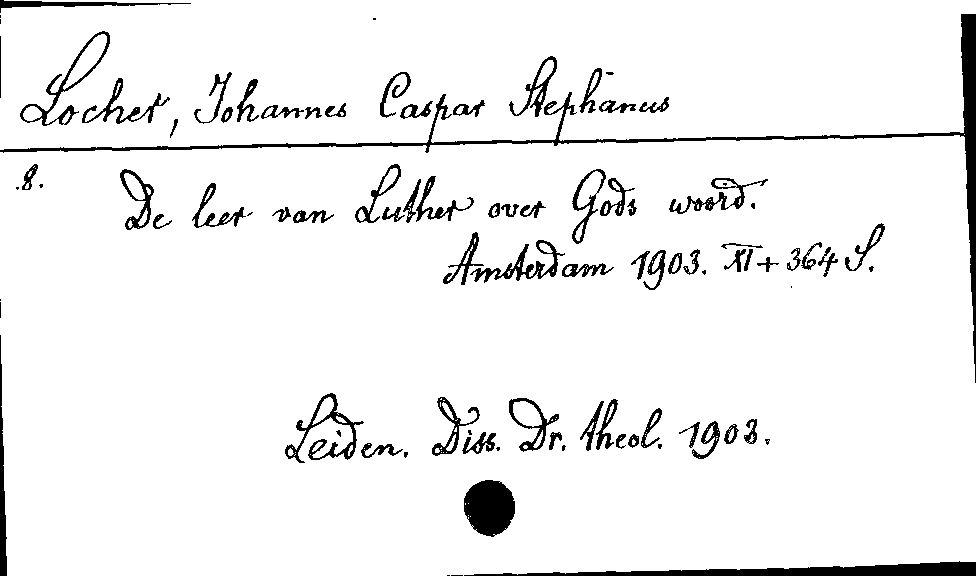 Locher, Johannes Caspar Stephanus
8. De leer van Luther over Gods woord.
Amsterdam 1903. XI + 364 S.
Leiden. Diss. Dr. theol. 1903.